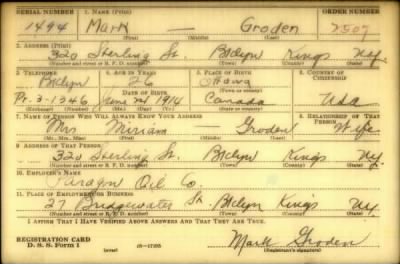 SERIAL NUMBER 1. NAME (Print) ORDER NUMBER
1494 Mark — Groden 2507
(First) (Middle) (Last)
2. ADDRESS (Print)
320 Sterling St. Bklyn Kings N.Y.
(Number and street or R. F. D. number) (Town) (County) (State)
3. TELEPHONE 4. AGE IN YEARS 5. PLACE OF BIRTH 6. COUNTRY OF CITIZENSHIP
Bklyn 26 Ottawa
DATE OF BIRTH
Pr. 3-1346 June 24 1914 Canada USA
(Exchange) (Number) (Mo.) (Day) (Yr.) (State or country)
7. NAME OF PERSON WHO WILL ALWAYS KNOW YOUR ADDRESS 8. RELATIONSHIP OF THAT PERSON
Mrs Miriam — Groden Wife
(Mr., Mrs., Miss) (First) (Middle) (Last)
9. ADDRESS OF THAT PERSON
320 Sterling St. Bklyn Kings N.Y.
(Number and street or R. F. D. number) (Town) (County) (State)
10. EMPLOYER'S NAME
Paragon Oil Co.
11. PLACE OF EMPLOYMENT OR BUSINESS
27 Bridgewater St. Bklyn Kings N.Y.
(Number and street or R. F. D. number) (Town) (County) (State)
I AFFIRM THAT I HAVE VERIFIED ABOVE ANSWERS AND THAT THEY ARE TRUE.
REGISTRATION CARD
D. S. S. Form 1 (over) Mark Groden
(Registrant's signature)